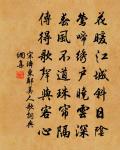 花暖江城斜日陰
鶯啼繡户曉雲深
春風不道珠簾隔
傳得歌聲與客心
宋濟東鄰美人歌詞典
網